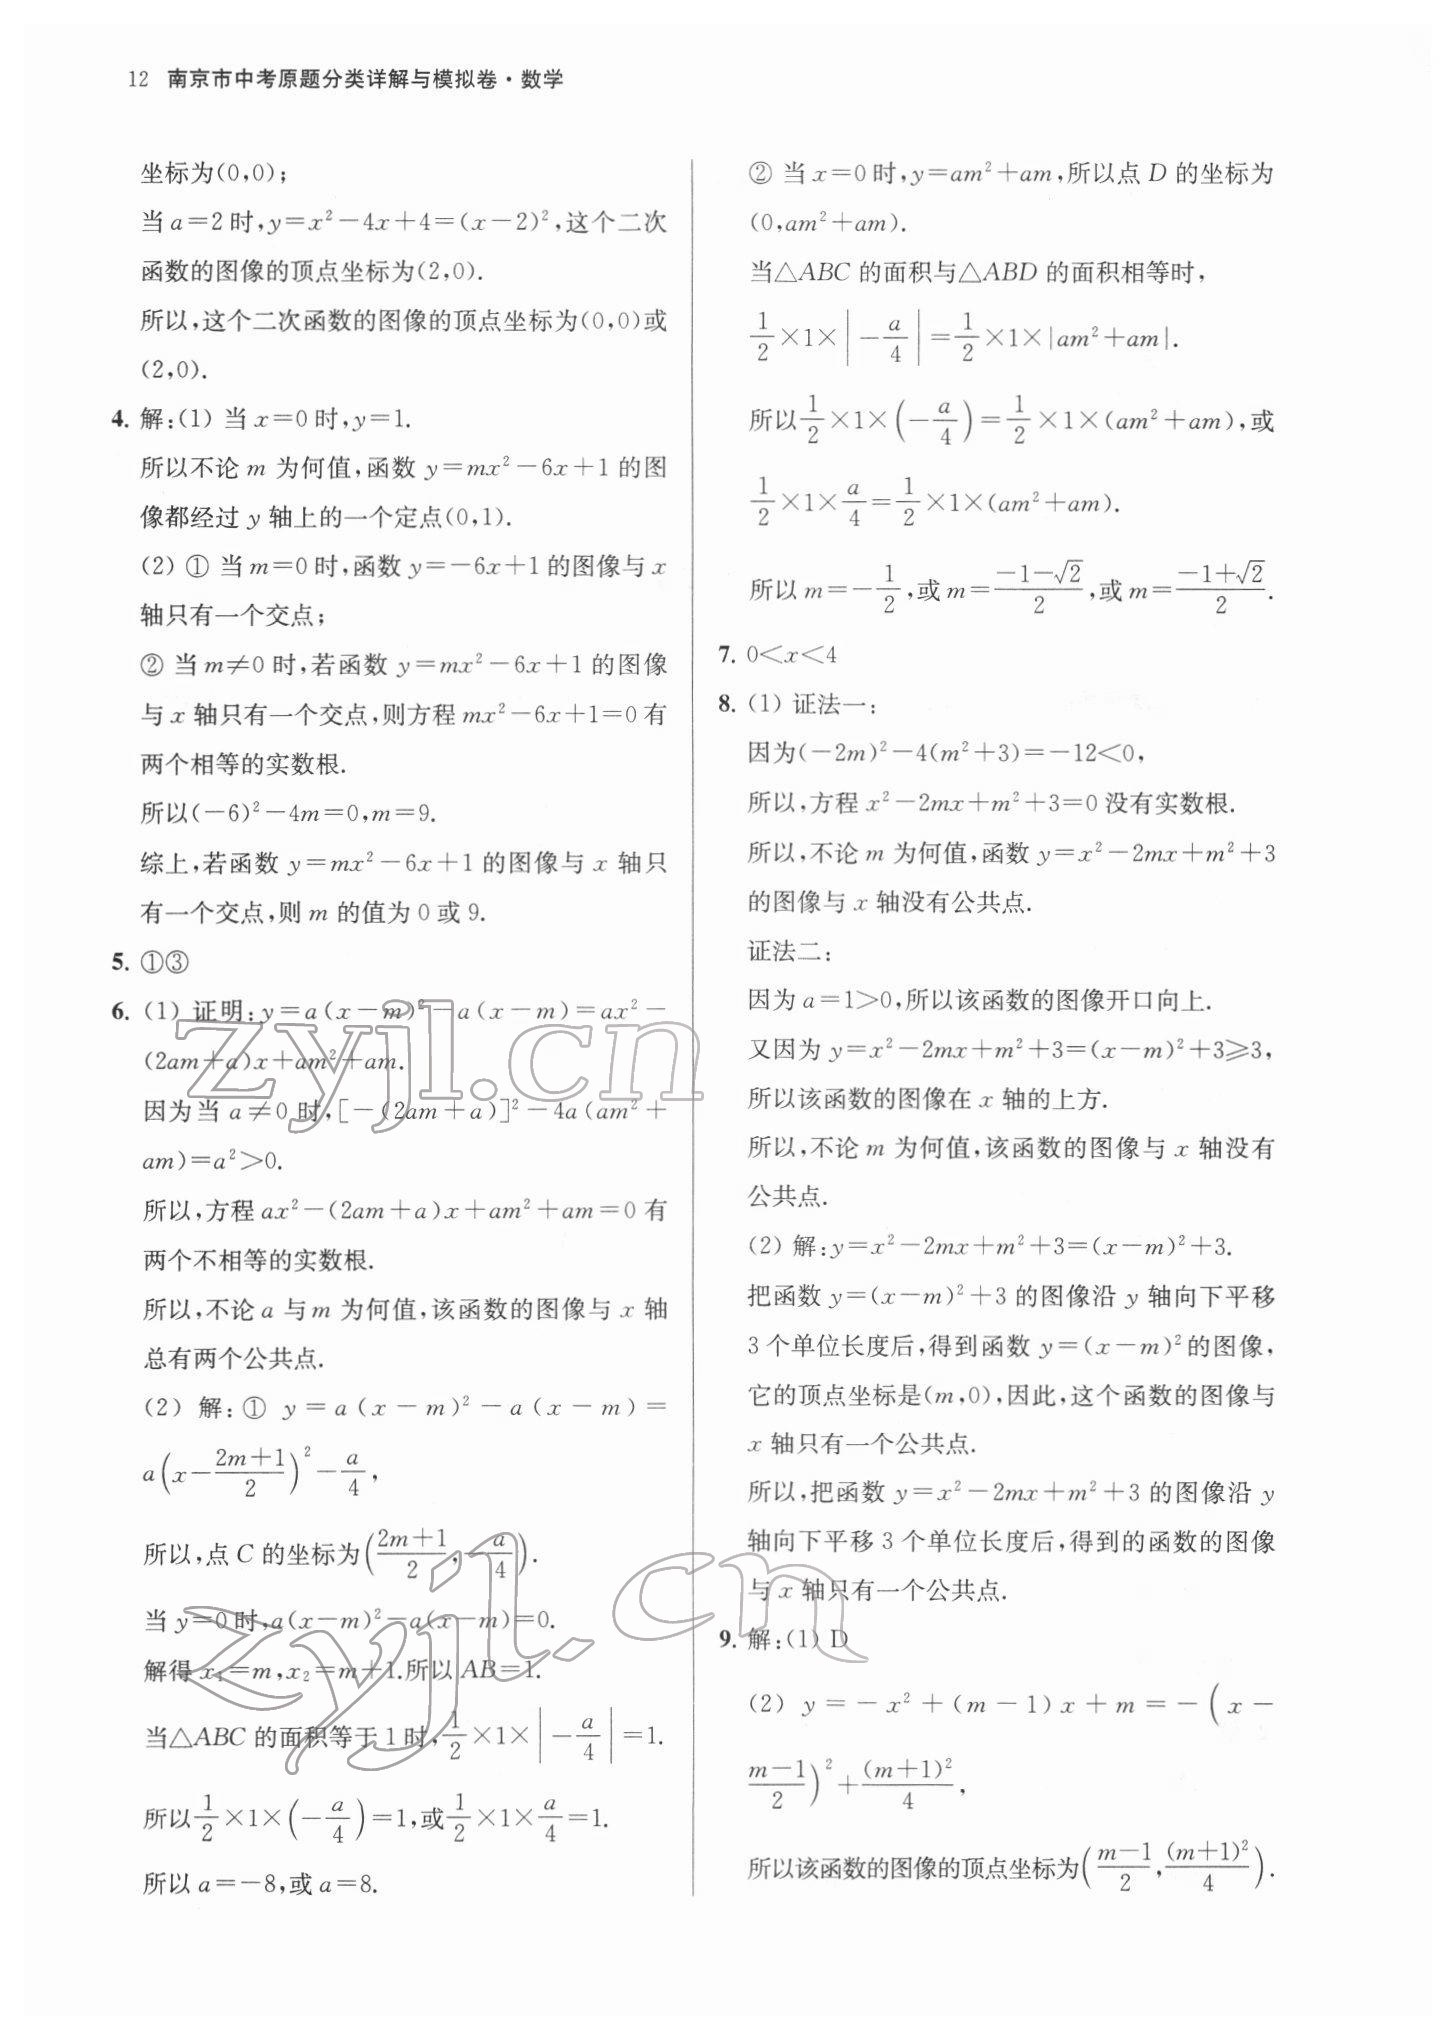 12 南京市中考原题分类详解与模拟卷·数学
坐标为(0,0);
当a=2时,y=x²-4x+4=(x-2)²,这个二次
函数的图像的顶点坐标为(2,0).
所以,这个二次函数的图像的顶点坐标为(0,0)或
(2,0).
4. 解:(1) 当x=0时,y=1.
所以不论m为何值,函数y=mx²-6x+1的图
像都经过y轴上的一个定点(0,1).
(2) ① 当m=0时,函数y=-6x+1的图像与x
轴只有一个交点;
② 当m≠0时,若函数y=mx²-6x+1的图像
与x轴只有一个交点,则方程mx²-6x+1=0有
两个相等的实数根.
所以(-6)²-4m=0,m=9.
综上,若函数y=mx²-6x+1的图像与x轴只
有一个交点,则m的值为0或9.
5. ①③
6. (1) 证明:y=a(x-m)²-a(x-m)=ax²-
(2am+a)x+am²+am.
因为当a≠0时,[-(2am+a)]²-4a(am²+
am)=a²>0.
所以,方程ax²-(2am+a)x+am²+am=0有
两个不相等的实数根.
所以,不论a与m为何值,该函数的图像与x轴
总有两个公共点.
(2) 解:① y=a(x-m)²-a(x-m)=
a(x-\frac{2m+1}{2})²-\frac{a}{4},
所以,点C的坐标为(\frac{2m+1}{2},-\frac{a}{4}).
当y=0时,a(x-m)²-a(x-m)=0.
解得x₁=m,x₂=m+1.所以AB=1.
当△ABC的面积等于1时,\frac{1}{2}×1×|-\frac{a}{4}|=1.
所以\frac{1}{2}×1×(-\frac{a}{4})=1,或\frac{1}{2}×1×\frac{a}{4}=1.
所以a=-8,或a=8.
② 当x=0时,y=am²+am,所以点D的坐标为
(0,am²+am).
当△ABC的面积与△ABD的面积相等时,
\frac{1}{2}×1×|-\frac{a}{4}|=\frac{1}{2}×1×|am²+am|.
所以\frac{1}{2}×1×(-\frac{a}{4})=\frac{1}{2}×1×(am²+am),或
\frac{1}{2}×1×\frac{a}{4}=\frac{1}{2}×1×(am²+am).
所以m=-\frac{1}{2},或m=\frac{-1-√2}{2},或m=\frac{-1+√2}{2}.
7. 0<x<4
8. (1) 证法一:
因为(-2m)²-4(m²+3)=-12<0,
所以,方程x²-2mx+m²+3=0没有实数根.
所以,不论m为何值,函数y=x²-2mx+m²+3
的图像与x轴没有公共点.
证法二:
因为a=1>0,所以该函数的图像开口向上.
又因为y=x²-2mx+m²+3=(x-m)²+3≥3,
所以该函数的图像在x轴的上方.
所以,不论m为何值,该函数的图像与x轴没有
公共点.
(2) 解:y=x²-2mx+m²+3=(x-m)²+3.
把函数y=(x-m)²+3的图像沿y轴向下平移
3个单位长度后,得到函数y=(x-m)²的图像,
它的顶点坐标是(m,0),因此,这个函数的图像与
x轴只有一个公共点.
所以,把函数y=x²-2mx+m²+3的图像沿y
轴向下平移3个单位长度后,得到的函数的图像
与x轴只有一个公共点.
9. 解:(1) D
(2) y=-x²+(m-1)x+m=-(x-
\frac{m-1}{2})²+\frac{(m+1)²}{4},
所以该函数的图像的顶点坐标为(\frac{m-1}{2},\frac{(m+1)²}{4}).
zyjl.cn
zyjl.cn